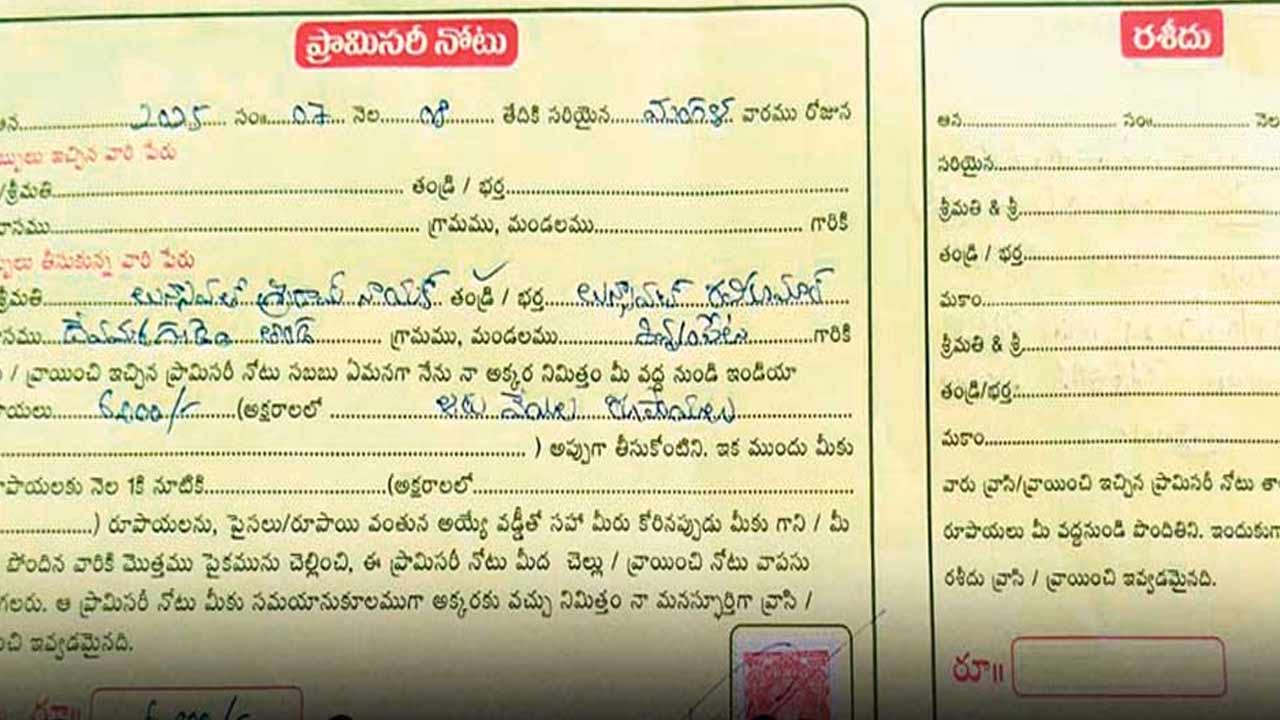 ప్రామిసరీ నోటు
ఆన.......... 2025 సం॥ 07 నెల 08 తేదికి సరియైన మంగళ వారము రోజున
ఇచ్చిన వారి పేరు
/శ్రీమతి.......... తండ్రి / భర్త..........
.......... గ్రామము, మండలము.......... గారికి
తీసుకున్న వారి పేరు
శ్రీమతి.......... శ్రీరామ్ నాయక్ తండ్రి / భర్త.......... రవికుమార్
.......... గ్రామము, మండలము.......... గారికి
/ వ్రాయించి ఇచ్చిన ప్రామిసరీ నోటు సబబు ఏమనగా నేను నా అక్కర నిమిత్తం మీ వద్ద నుండి ఇండియా
6000/- (అక్షరాలలో ఆరు వేయిల రూపాయలు
.......... ) అప్పుగా తీసుకోంటిని. ఇక ముందు మీకు
నెల 1కి నూటికి..........(అక్షరాలలో..........
..........) రూపాయలను, పైసలు/రూపాయి వంతున అయ్యే వడ్డీతో సహా మీరు కోరినప్పుడు మీకు గాని / మీ
పొందిన వారికి మొత్తము పైకమును చెల్లించి, ఈ ప్రామిసరీ నోటు మీద చెల్లు / వ్రాయించి నోటు వాపసు
గలరు. ఆ ప్రామిసరీ నోటు మీకు సమయానుకూలముగా అక్కరకు వచ్చు నిమిత్తం నా మనస్ఫూర్తిగా వ్రాసి /
ఇవ్వడమైనది.
రూ॥
రశీదు
ఆన.......... సం॥.......... నెల
సరియైన..........
శ్రీమతి & శ్రీ..........
తండ్రి / భర్త..........
మకాం..........
శ్రీమతి & శ్రీ..........
తండ్రి/భర్త:..........
మకాం..........
వారు వ్రాసి/వ్రాయించి ఇచ్చిన ప్రామిసరీ నోటు
రూపాయలు మీ వద్దనుండి పొందితిని. ఇందుకుగా
రశీదు వ్రాసి / వ్రాయించి ఇవ్వడమైనది.
రూ॥